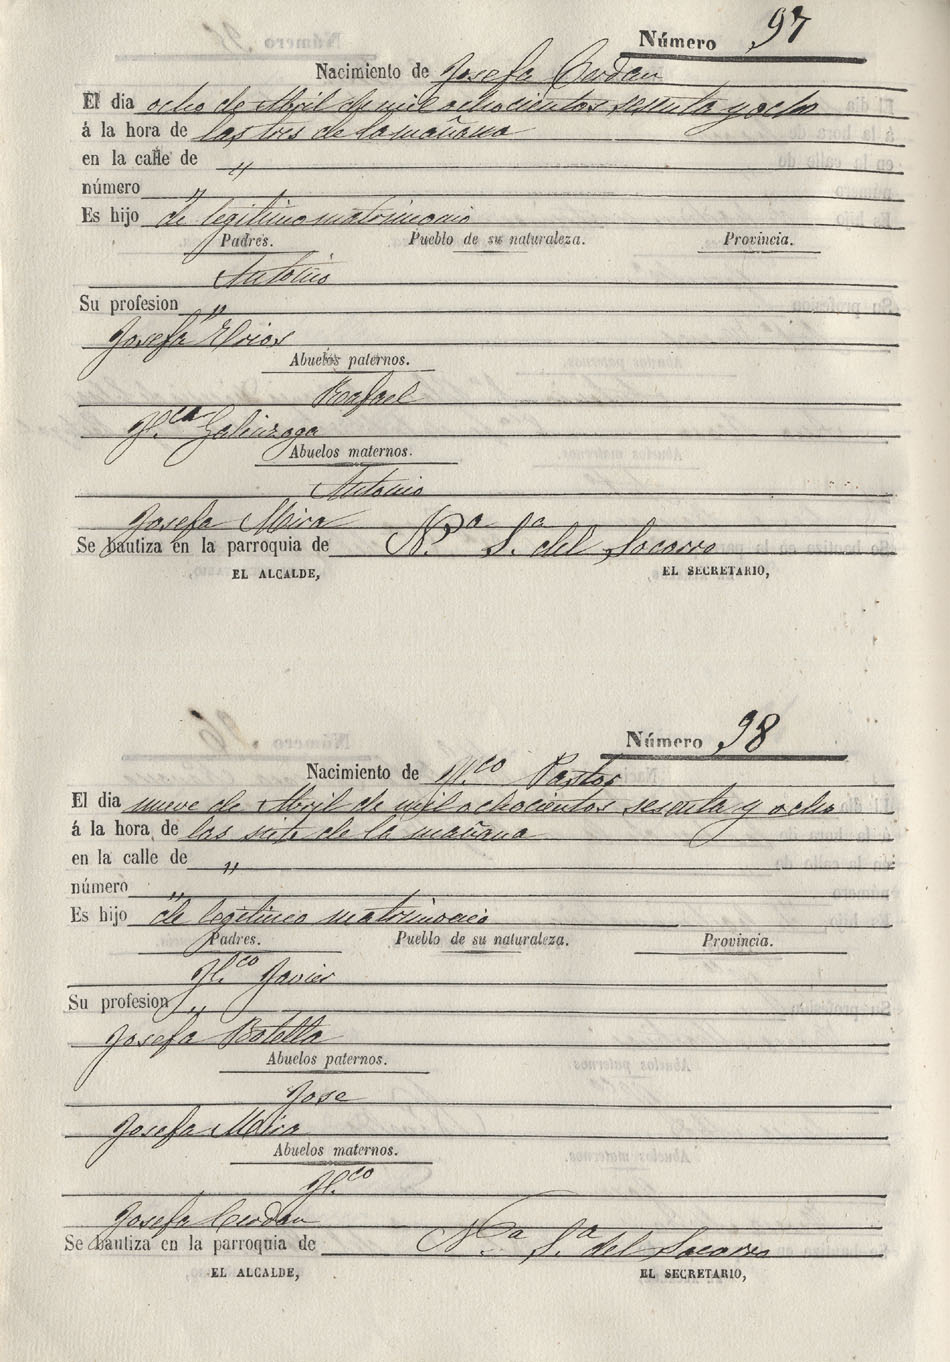 Número 97
Nacimiento de Josefa Cerdan
El dia ocho de Abril de mil ochocientos sesenta y ocho
á la hora de las tres de la mañana
en la calle de "
número "
Es hijo de legitimo matrimonio
Padres. Pueblo de su naturaleza. Provincia.
Antonio
Su profesion "
Josefa
Abuelos paternos.
Rafael
Fca Galinzoga
Abuelos maternos.
Antonio
Josefa Mira
Se bautiza en la parroquia de Na Sa del Socorro
EL ALCALDE, EL SECRETARIO,
Número 98
Nacimiento de Fco Pastor
El dia nueve de Abril de mil ochocientos sesenta y ocho
á la hora de las siete de la mañana
en la calle de "
número "
Es hijo de legitimo matrimonio
Padres. Pueblo de su naturaleza. Provincia.
Fco Javier
Su profesion "
Josefa Botella
Abuelos paternos.
Jose
Josefa Mira
Abuelos maternos.
Fco
Josefa Cerdan
Se bautiza en la parroquia de Na Sa del Socorro
EL ALCALDE, EL SECRETARIO,